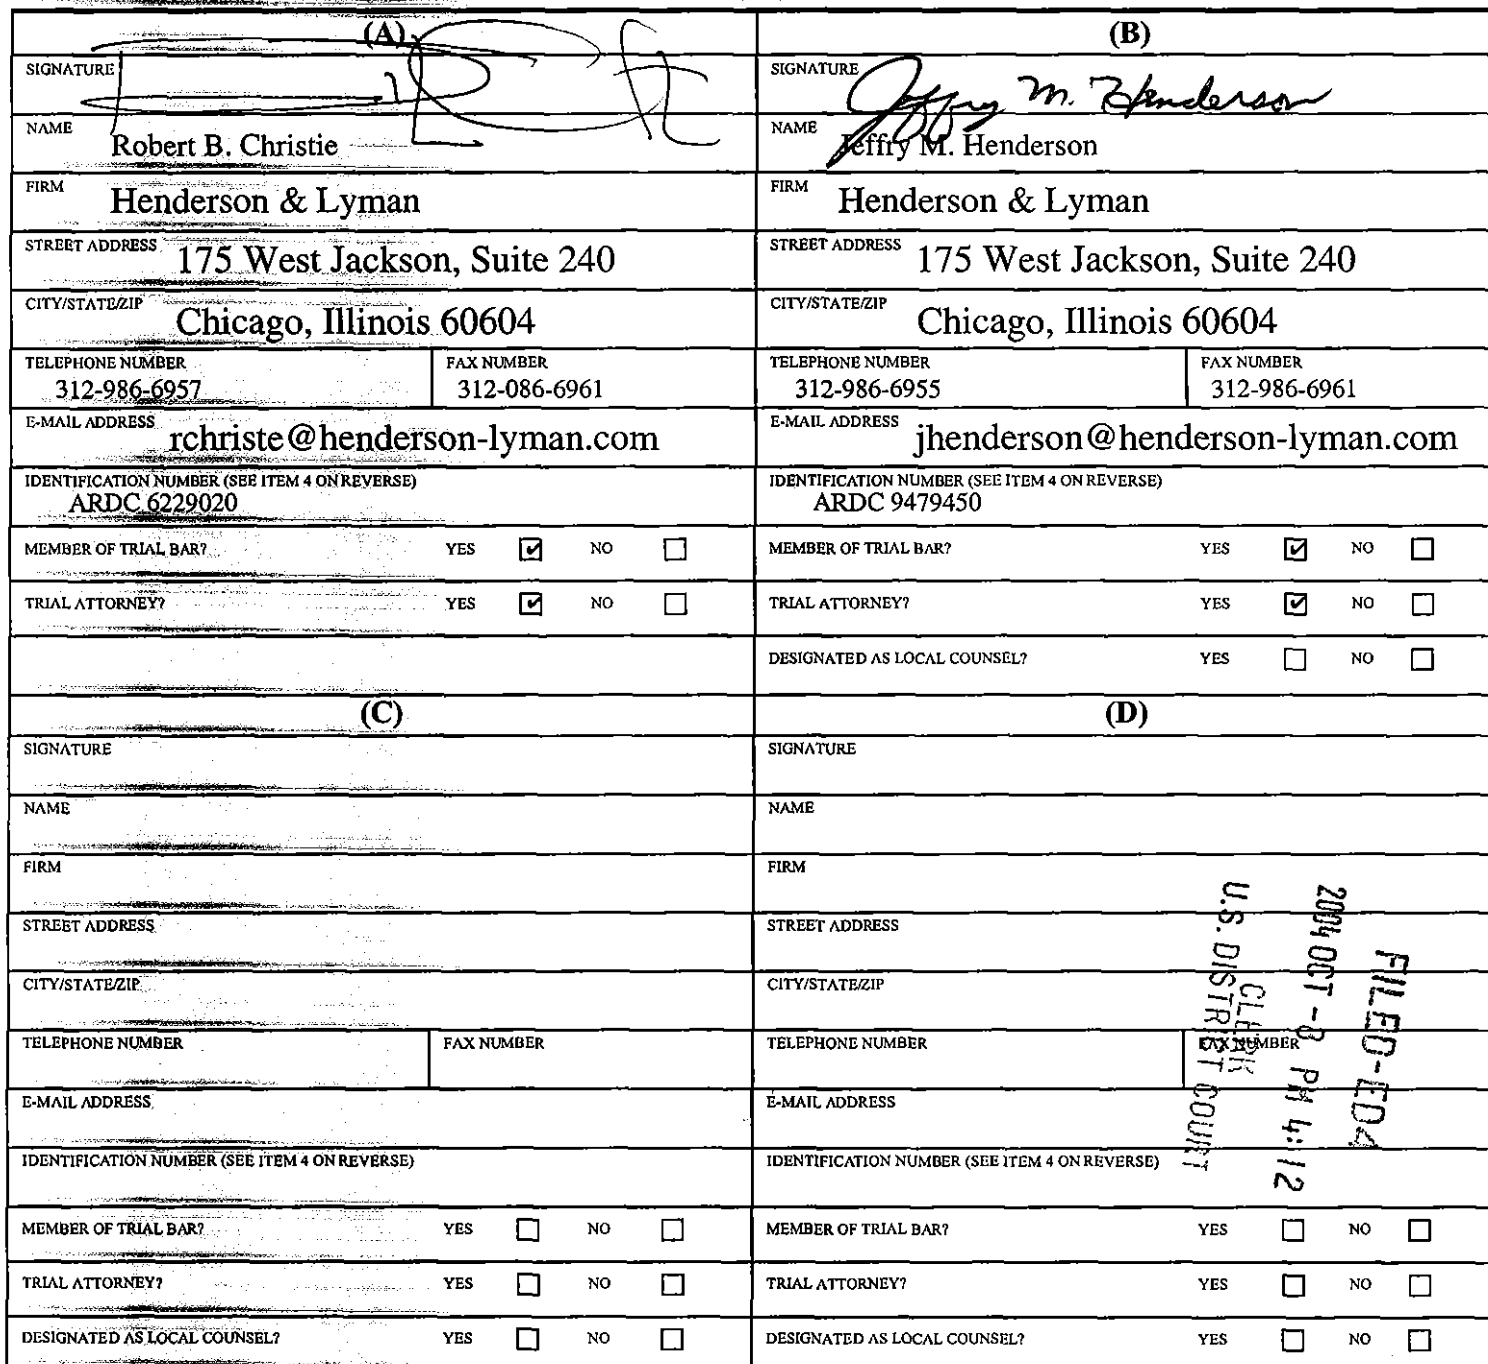 (A)
SIGNATURE
NAME Robert B. Christie
FIRM Henderson & Lyman
STREET ADDRESS 175 West Jackson, Suite 240
CITY/STATE/ZIP Chicago, Illinois 60604
TELEPHONE NUMBER 312-986-6957 FAX NUMBER 312-086-6961
E-MAIL ADDRESS rchriste@henderson-lyman.com
IDENTIFICATION NUMBER (SEE ITEM 4 ON REVERSE)
ARDC 6229020
MEMBER OF TRIAL BAR? YES ✔ NO
TRIAL ATTORNEY? YES ✔ NO
(B)
SIGNATURE Jeffry M. Henderson
NAME Jeffry M. Henderson
FIRM Henderson & Lyman
STREET ADDRESS 175 West Jackson, Suite 240
CITY/STATE/ZIP Chicago, Illinois 60604
TELEPHONE NUMBER 312-986-6955 FAX NUMBER 312-986-6961
E-MAIL ADDRESS jhenderson@henderson-lyman.com
IDENTIFICATION NUMBER (SEE ITEM 4 ON REVERSE)
ARDC 9479450
MEMBER OF TRIAL BAR? YES ✔ NO
TRIAL ATTORNEY? YES ✔ NO
DESIGNATED AS LOCAL COUNSEL? YES NO
(C)
SIGNATURE
NAME
FIRM
STREET ADDRESS
CITY/STATE/ZIP
TELEPHONE NUMBER FAX NUMBER
E-MAIL ADDRESS
IDENTIFICATION NUMBER (SEE ITEM 4 ON REVERSE)
MEMBER OF TRIAL BAR? YES NO
TRIAL ATTORNEY? YES NO
DESIGNATED AS LOCAL COUNSEL? YES NO
(D)
SIGNATURE
NAME
FIRM
STREET ADDRESS
CITY/STATE/ZIP
TELEPHONE NUMBER FAX NUMBER
E-MAIL ADDRESS
IDENTIFICATION NUMBER (SEE ITEM 4 ON REVERSE)
MEMBER OF TRIAL BAR? YES NO
TRIAL ATTORNEY? YES NO
DESIGNATED AS LOCAL COUNSEL? YES NO
FILED-ED4
2004 OCT -8 PM 4:12
CLERK
U.S. DISTRICT COURT